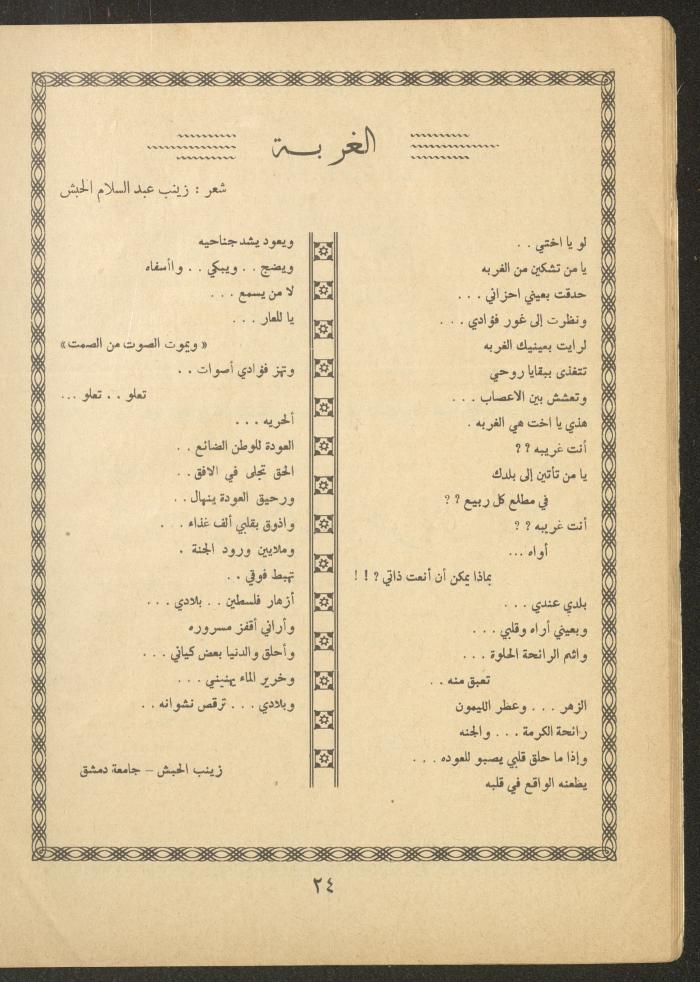 الغربة
شعر : زينب عبد السلام الحبش
لو يا اختي . .
يا من تشكين من الغربه
حدقت بعيني احزاني . . .
ونظرت إلى غور فؤادي . . .
لرايت بعينيك الغربه
تتغذى ببقايا روحي
وتعشش بين الاعصاب . . .
هذي يا اخت هي الغربه .
أنت غريبه ? ?
يا من تأتين إلى بلدك
في مطلع كل ربيع ? ?
أنت غريبه ? ?
أواه ...
بماذا يمكن أن أنعت ذاتي ? ! !
بلدي عندي . . .
وبعيني أراه وقلبي . . .
واشم الرائحة الحلوة . . .
تعبق منه . .
الزهر . . . وعطر الليمون
رائحة الكرمة . . . والجنه
وإذا ما حلق قلبي يصبو للعوده . . .
يطعنه الواقع في قلبه
ويعود يشد جناحيه
ويضج . . ويبكي . . واأسفاه
لا من يسمع . . .
يا للعار . . .
« ويموت الصوت من الصمت »
وتهز فؤادي أصوات . .
تعلو . . تعلو ...
ألحريه . . .
العودة للوطن الضائع . .
الحق تجلى في الافق . .
ورحيق العودة ينهال . .
واذوق بقلبي ألف غذاء . . .
وملايين ورود الجنة .
تهبط فوقي . .
أزهار فلسطين . . بلادي . . .
وأراني أقفز مسروره
وأحلق والدنيا بعض كياني . . .
وخرير الماء يهنيني . . .
وبلادي . . . ترقص نشوانه . .
زينب الحبش – جامعة دمشق
٢٤